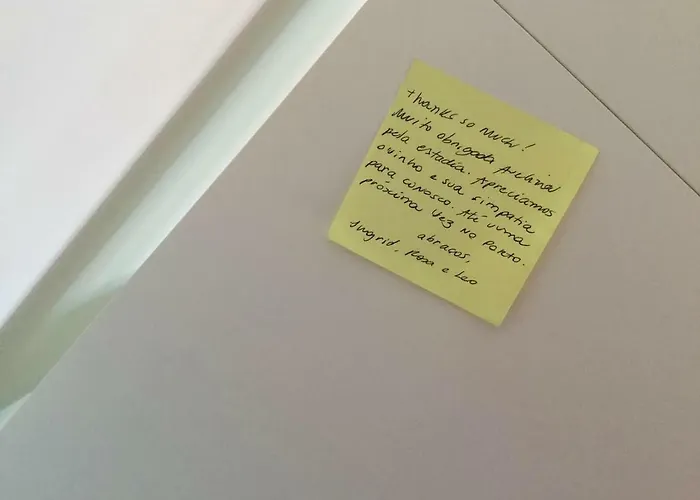 thanks so much!
Muito obrigada Avelina
pela estadia. Apreciamos
o vinho e sua simpatia
para conosco. Até uma
próxima vez no Porto.
abraços,
Ingrid, Rosa e Leo